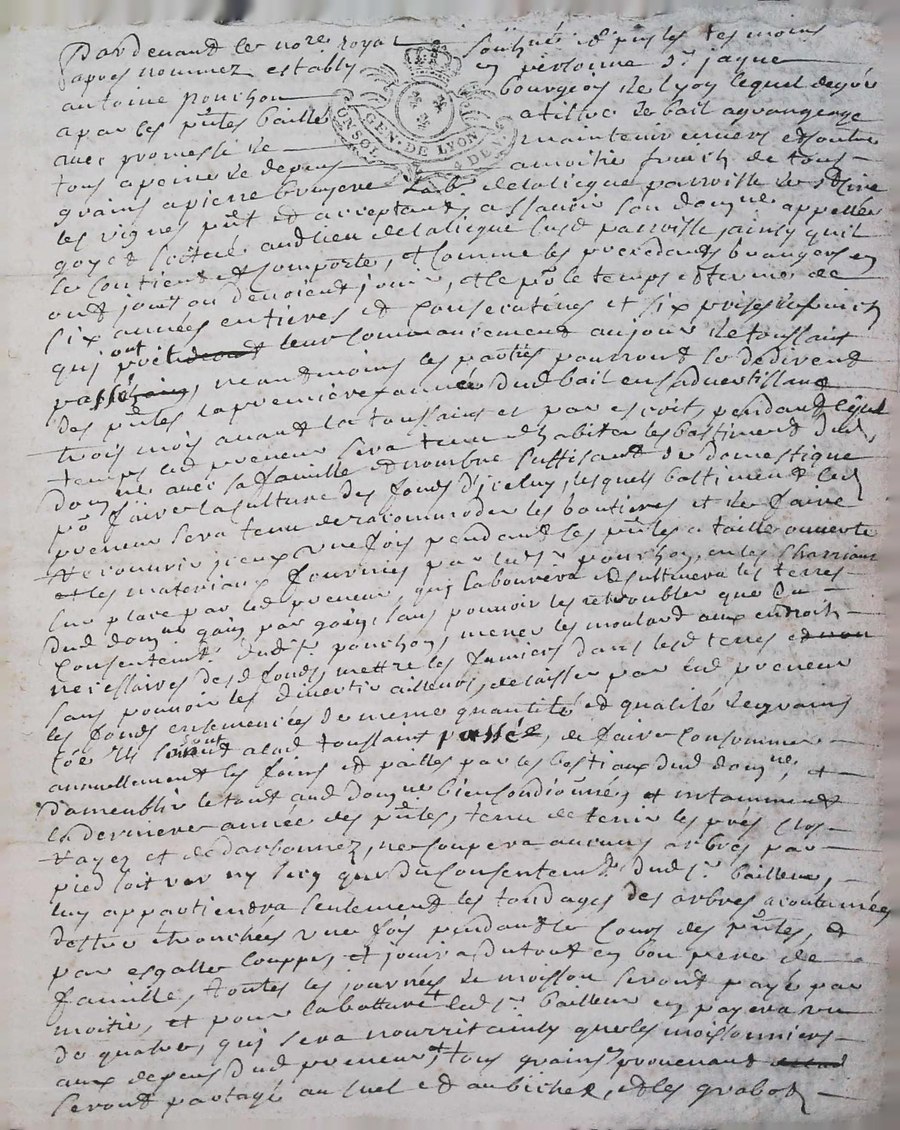 Pardevant le nore royal soubsigné et pnts les tesmoins
apres nommez estably en personne sr jaque
antoine pouchon bourgeois de Lyon lequel de gré
a par les pntes baille a tiltre de bail a grangeage
avec promesse de maintenir envers et contre
tous a peine de depens a moitié fruits de tous
GEN. DE LYON
grains a pierre bruyere de la licque parroisse de
les vignes pnt et acceptant, a sçavoir son domne appellé
goyet scitué aud lieu de la licque susd parroisse ainsy quil
se contient et comporte, et comme les precedents grangers en
ont jouis ou devoient jouir, et ce pr le temps et terme de
six années entieres et consecutives et six prises de fruits
qui ont pris leur commancement au jour de toussaint
passé, neantmoins les parties pourront se dedire
des pntes la premiere année dud bail en s'advertissant
trois mois avant la toussaint et par escrit, pendant lequel
temps led preneur sera tenu d'habiter les bastiments dud
domne avec sa famille et nombre suffisant de domestique
pr faire la culture des fonds d'iceluy, lesquels bastiments led
preneur sera tenu de racommoder les goutieres et de faire
recouvrir iceux une fois pendant les pntes a taille ouverte
et les materiaux fournies par led sr pouchon, en les charriant
sur place par led preneur, qui labourera et cultivera les terres
dud domne gain par gain, sans pouvoir les retroubler que du
consentemt dud sr pouchon, mener les moulard aux endroits
necessaires desd fonds, mettre les fumiers dans lesd terres
sans pouvoir les divertir ailleurs, delaisser par led preneur
les fonds ensemencées de meme quantité et qualité de grains
qu'ils sont a lad toussaint passée, de faire consommer
annuellement les foins et pailles par les bestiaux dud domne, et
d'ameublir le tout aud domne bien conditionné, et notamment
la derniere année des pntes, tenu de tenir les prés clos
rayez et de darbonnez, ne coupera aucuns arbres par
pied soit verd ny secq que du consentemt dud sr bailleur,
luy appartiendra seulement les tondages des arbres acoutumées
d'estre tronchées une fois pendant le cours des pntes, et
par esgalle couppe, et jouira du tout en bon pere de
famille, toutes les journées de moisson seront payé par
moitié, et pour la batture led sr bailleur en payera un
de quatre, qui sera nourrit ainsy que les moissonniers
aux depens dud preneur, tous grains provenant
seront partagé au suel et au bichet, et les grabots